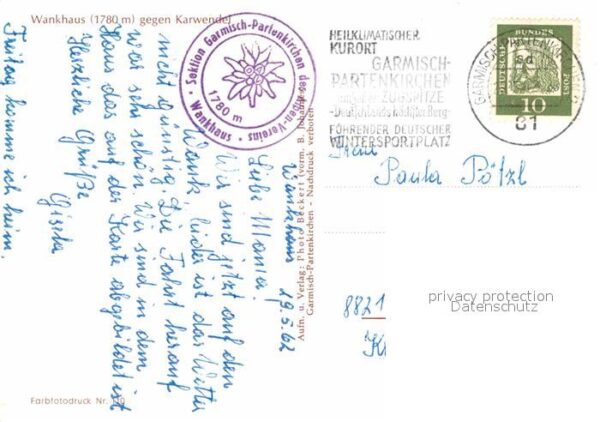 Wankhaus (1780 m) gegen Karwendel
Sektion Garmisch-Partenkirchen des Alpen-Vereins
Wankhaus
1780 m
HEILKLIMATISCHER
KURORT
GARMISCH-
PARTENKIRCHEN
ZUGSPITZE
FÜHRENDER DEUTSCHER
WINTERSPORTPLATZ
GARMISCH-PARTENKIRCHEN
81
DEUTSCHE BUNDESPOST
10
Wankhaus
19.5.62
Liebe Mama.
Wir sind jetzt auf den
Wank, leider ist das Wetter
nicht günstig. Die Fahrt herauf
war sehr schön. Wir sind in dem
Haus das auf der Karte abgebildet ist
Herzliche Grüße
Gisela
Freitag komme ich heim.
Aufn. u. Verlag: Photo Beckert (vorm. B. Johannes)
Garmisch-Partenkirchen - Nachdruck verboten
Frau
Paula Pötzl
8821
privacy protection
Datenschutz
Farbfotodruck Nr.